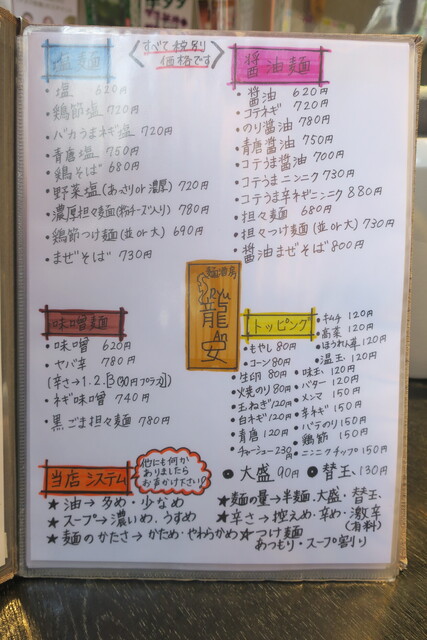 塩麺
すべて税別
価格です
・塩 620円
・鶏節塩 720円
・バカうまネギ塩 720円
・青唐塩 750円
・鶏そば 680円
・野菜塩(あっさりor濃厚) 720円
・濃厚担々麺(粉チーズ入り) 780円
・鶏節つけ麺(並or大) 690円
・まぜそば 730円
醤油麺
・醤油 620円
・コテネギ 720円
・のり醤油 780円
・青唐醤油 750円
・コテうま醤油 700円
・コテうまニンニク 730円
・コテうま辛ネギニンニク 880円
・担々麺 680円
・担々つけ麺(並or大) 730円
・醤油まぜそば 800円
麺酒房
Ryu
龍
An
安
味噌麺
・味噌 620円
・ヤバ辛 780円
(辛さ→1.2.[3(30円プラス)])
・ネギ味噌 740円
・黒ごま担々麺 780円
トッピング
・もやし 80円
・コーン 80円
・生卵 80円
・焼のり 80円
・玉ねぎ 120円
・白ネギ 120円
・青唐 120円
・チャーシュー 230円
・キムチ 120円
・高菜 120円
・ほうれん草 120円
・温玉 120円
・味玉 120円
・バター 120円
・メンマ 150円
・辛ネギ 150円
・バラのり 150円
・鶏節 150円
・ニンニクチップ 150円
●大盛 90円 ●替玉 130円
当店システム
他にも何か
ありましたら
お声かけ下さい!
★油→多め・少なめ
★スープ→濃いめ、うすめ
★麺のかたさ→かため・やわらかめ
★麺の量→半麺・大盛・替玉
★辛さ→控えめ・辛め・激辛
(有料)
★つけ麺
あつもり・スープ割り